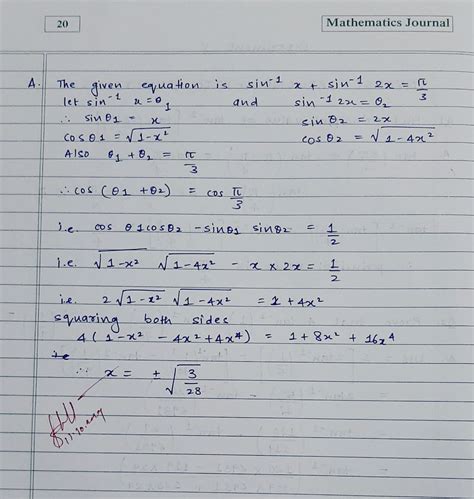 20
Mathematics Journal
A. The given equation is sin⁻¹ x + sin⁻¹ 2x = π/3
let sin⁻¹ x = θ1 and sin⁻¹ 2x = θ2
∴ sin θ1 = x sin θ2 = 2x
cos θ1 = √(1-x²) cos θ2 = √(1-4x²)
Also θ1 + θ2 = π/3
∴ cos (θ1 + θ2) = cos π/3
i.e. cos θ1 cos θ2 - sin θ1 sin θ2 = 1/2
i.e. √(1-x²) √(1-4x²) - x × 2x = 1/2
i.e. 2√(1-x²) √(1-4x²) = 1 + 4x²
squaring both sides
4(1-x² - 4x² + 4x⁴) = 1 + 8x² + 16x⁴
i.e
∴ x = ± √(3/28)